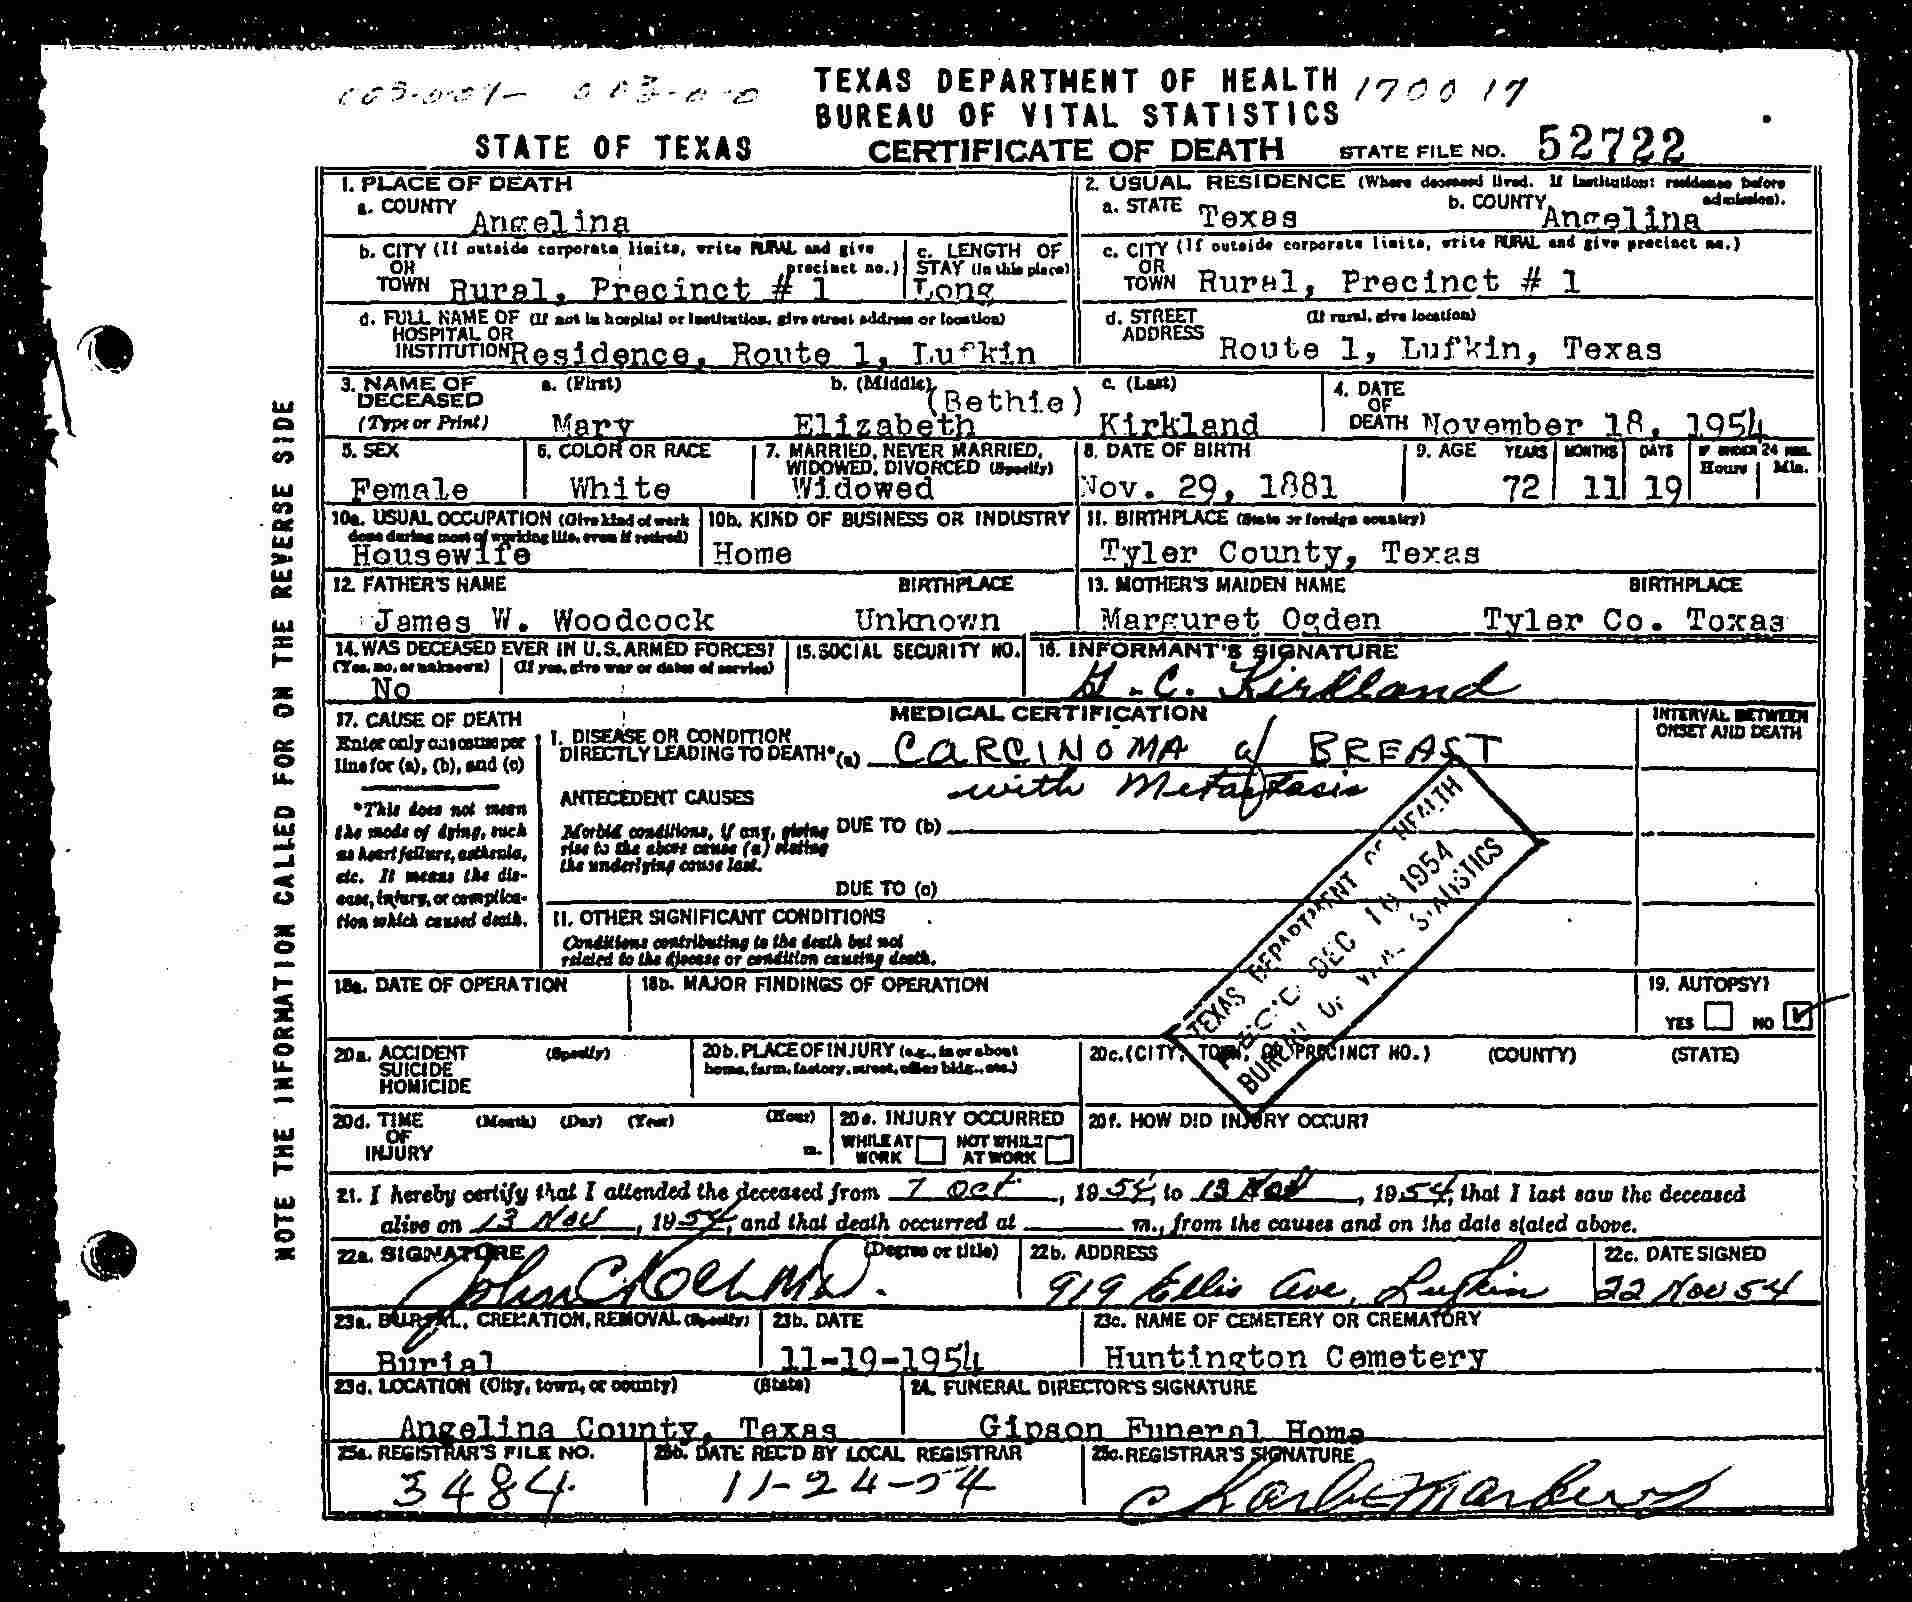 TEXAS DEPARTMENT OF HEALTH 170017
BUREAU OF VITAL STATISTICS
STATE OF TEXAS CERTIFICATE OF DEATH STATE FILE NO. 52722
NOTE THE INFORMATION CALLED FOR ON THE REVERSE SIDE
1. PLACE OF DEATH
a. COUNTY Angelina
2. USUAL RESIDENCE (Where deceased lived. If institution: residence before admission).
a. STATE Texas b. COUNTY Angelina
b. CITY (If outside corporate limits, write RURAL and give precinct no.)
OR
TOWN Rural, Precinct # 1
c. LENGTH OF
STAY (in this place)
Long
c. CITY (If outside corporate limits, write RURAL and give precinct no.)
OR
TOWN Rural, Precinct # 1
d. FULL NAME OF (If not in hospital or institution, give street address or location)
HOSPITAL OR
INSTITUTION Residence, Route 1, Lufkin
d. STREET (If rural, give location)
ADDRESS
Route 1, Lufkin, Texas
3. NAME OF DECEASED (Type or Print)
a. (First) b. (Middle) c. (Last)
(Bethie)
Mary Elizabeth Kirkland
4. DATE
OF
DEATH November 18, 1954
5. SEX
Female
6. COLOR OR RACE
White
7. MARRIED, NEVER MARRIED,
WIDOWED, DIVORCED (Specify)
Widowed
8. DATE OF BIRTH
Nov. 29, 1881
9. AGE YEARS MONTHS DAYS IF UNDER 24 HRS.
Hours Min.
72 11 19
10a. USUAL OCCUPATION (Give kind of work
done during most of working life, even if retired)
Housewife
10b. KIND OF BUSINESS OR INDUSTRY
Home
11. BIRTHPLACE (State or foreign country)
Tyler County, Texas
12. FATHER'S NAME BIRTHPLACE
James W. Woodcock Unknown
13. MOTHER'S MAIDEN NAME BIRTHPLACE
Marguret Ogden Tyler Co. Toxas
14. WAS DECEASED EVER IN U.S. ARMED FORCES?
(Yes, no, or unknown) (If yes, give war or dates of service)
No
15. SOCIAL SECURITY NO.
16. INFORMANT'S SIGNATURE
G. C. Kirkland
17. CAUSE OF DEATH
Enter only one cause per
line for (a), (b), and (c)
*This does not mean
the mode of dying, such
as heart failure, asthenia,
etc. It means the dis-
ease, injury, or complica-
tion which caused death.
MEDICAL CERTIFICATION
INTERVAL BETWEEN
ONSET AND DEATH
I. DISEASE OR CONDITION
DIRECTLY LEADING TO DEATH* (a) CARCINOMA of BREAST
with Metastasis
ANTECEDENT CAUSES
Morbid conditions, if any, giving
rise to the above cause (a) stating
the underlying cause last.
DUE TO (b)
DUE TO (c)
II. OTHER SIGNIFICANT CONDITIONS
Conditions contributing to the death but not
related to the disease or condition causing death.
TEXAS DEPARTMENT OF HEALTH
REC'D DEC 10 1954
BUREAU OF VITAL STATISTICS
18a. DATE OF OPERATION
18b. MAJOR FINDINGS OF OPERATION
19. AUTOPSY?
YES NO
20a. ACCIDENT (Specify)
SUICIDE
HOMICIDE
20b. PLACE OF INJURY (e.g., in or about
home, farm, factory, street, office bldg., etc.)
20c. (CITY, TOWN, OR PRECINCT NO.) (COUNTY) (STATE)
20d. TIME (Month) (Day) (Year) (Hour)
OF
INJURY m.
20e. INJURY OCCURRED
WHILE AT WORK NOT WHILE AT WORK
20f. HOW DID INJURY OCCUR?
21. I hereby certify that I attended the deceased from 7 Oct, 1954, to 13 Nov, 1954, that I last saw the deceased
alive on 13 Nov, 1954, and that death occurred at m., from the causes and on the date stated above.
22a. SIGNATURE (Degree or title)
John C M.D.
22b. ADDRESS
919 Ellis Ave, Lufkin
22c. DATE SIGNED
22 Nov 54
23a. BURIAL, CREMATION, REMOVAL (Specify)
Burial
23b. DATE
11-19-1954
23c. NAME OF CEMETERY OR CREMATORY
Huntington Cemetery
23d. LOCATION (City, town, or county) (State)
Angelina County, Texas
24. FUNERAL DIRECTOR'S SIGNATURE
Gipson Funeral Home
25a. REGISTRAR'S FILE NO.
3484
25b. DATE REC'D BY LOCAL REGISTRAR
11-24-54
25c. REGISTRAR'S SIGNATURE